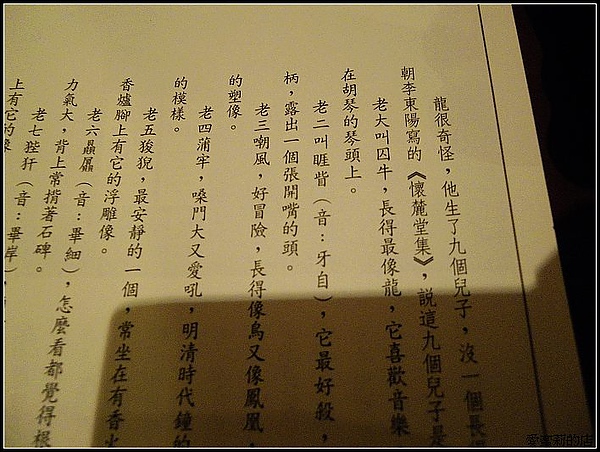 龍很奇怪，他生了九個兒子，沒一個長
朝李東陽寫的《懷麓堂集》，說這九個兒子是
老大叫囚牛，長得最像龍，它喜歡音樂，
在胡琴的琴頭上。
老二叫睚眥（音：牙自），它最好殺，
柄，露出一個張開嘴的頭。
老三嘲風，好冒險，長得像鳥又像鳳凰，
的塑像。
老四蒲牢，嗓門大又愛吼，明清時代鐘的
的模樣。
老五狻猊，最安靜的一個，常坐在有香火
香爐腳上有它的浮雕像。
老六贔屭（音：畢細），怎麼看都覺得根
力氣大，背上常揹著石碑。
老七狴犴（音：畢岸），
上有它的像